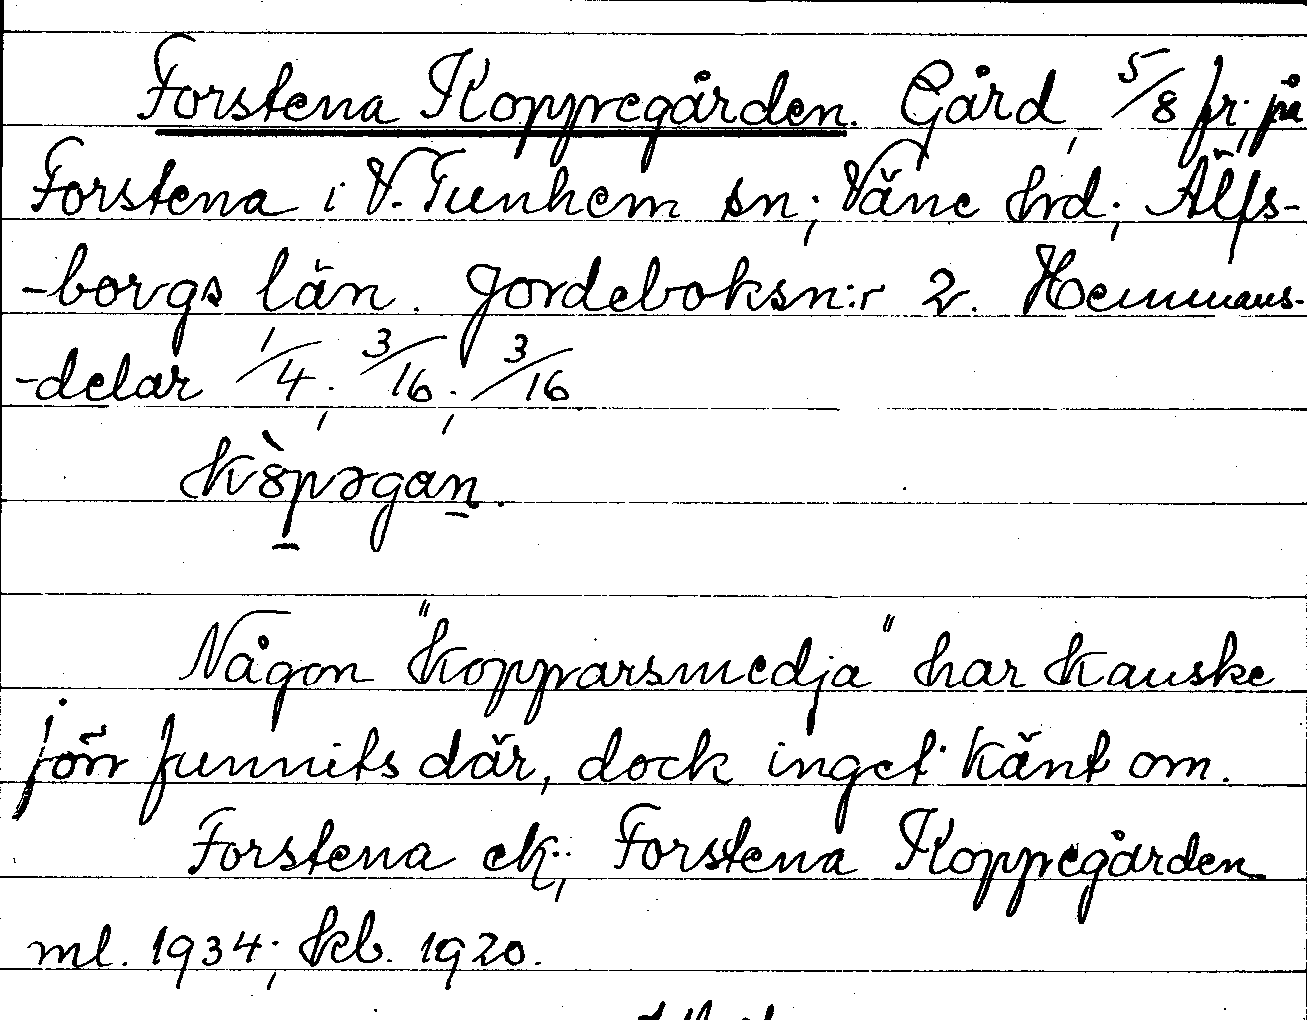 Forstena Koppregården. Gård, 5/8 fr; på
Forstena i V. Tunhem sn; Väne hrd; Älfs-
-borgs län. Jordeboksn:r 2. Hemmans-
-delar 1/4; 3/16; 3/16
Någon "kopparsmedja" har kanske
förr funnits där, dock inget känt om.
Forstena ek.; Forstena Koppregården
ml. 1934; kb. 1920.